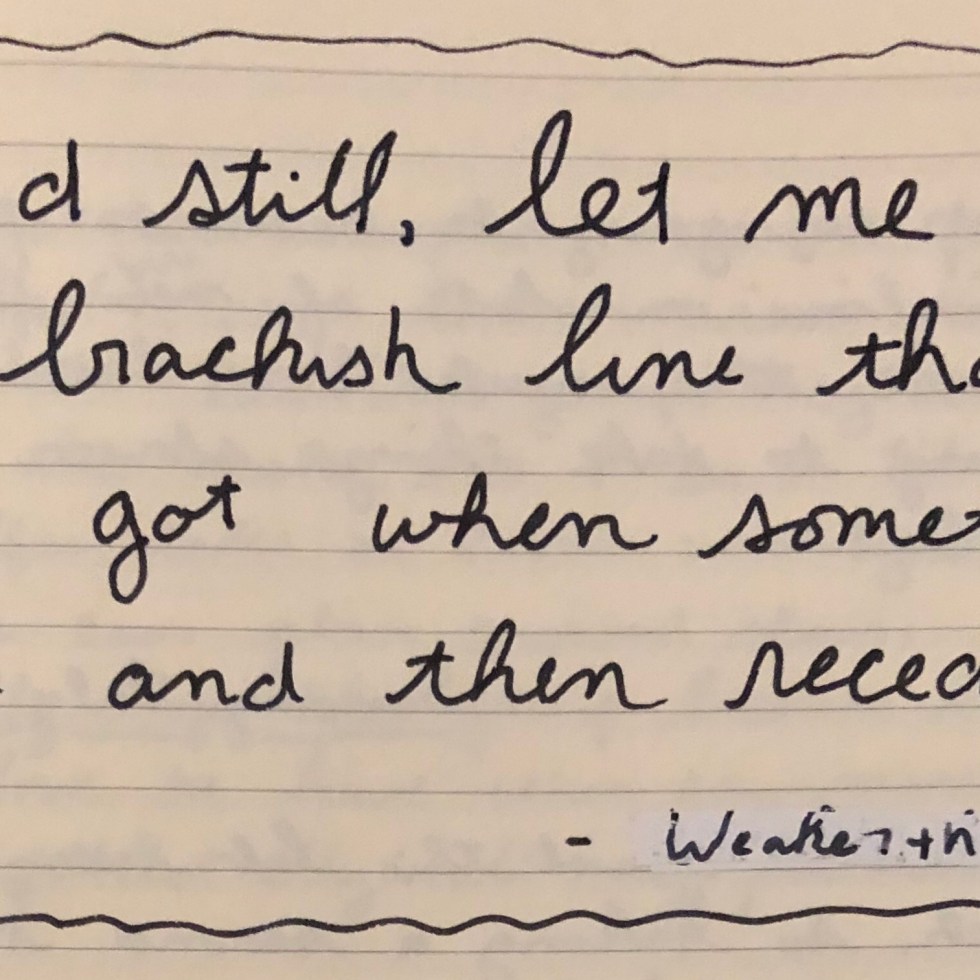 d still, let me
brackish line tha
got when some
and then reced
- Weakerth